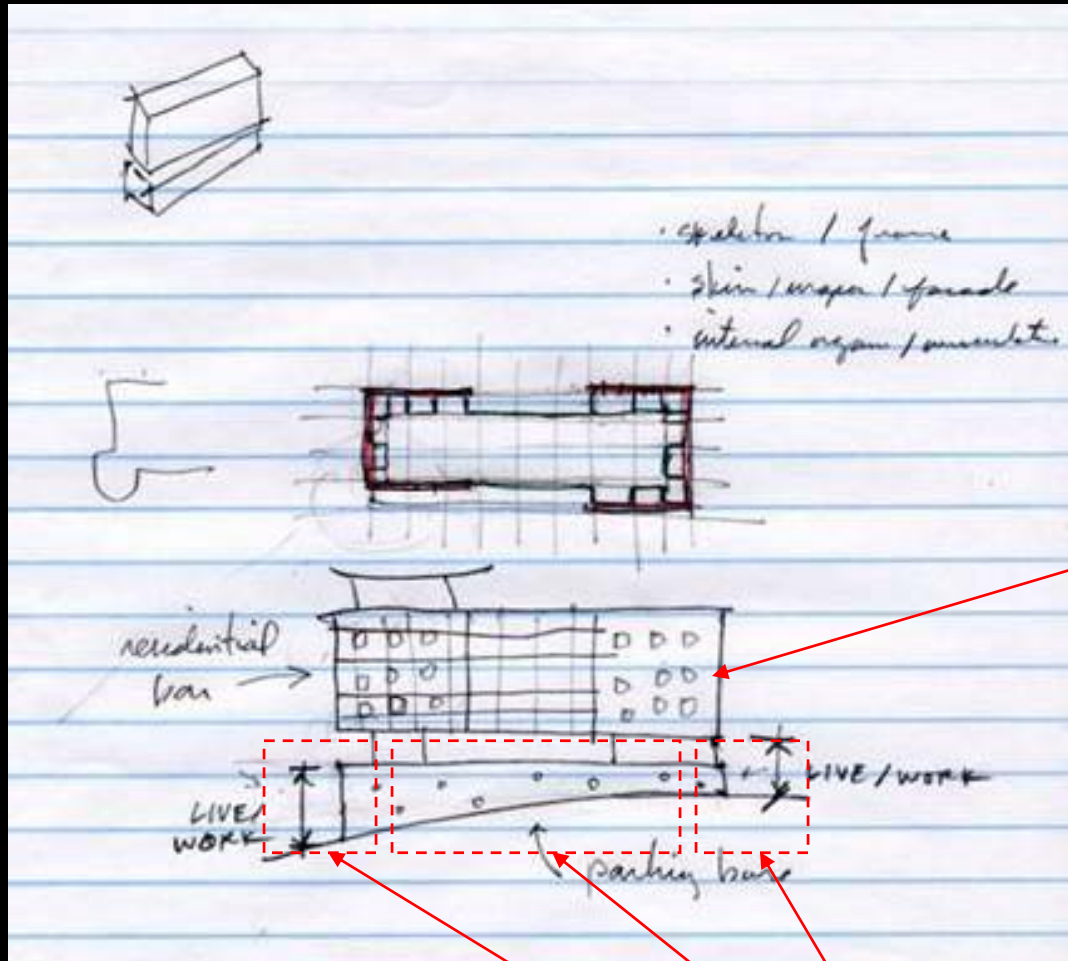 · skeleton / frame
· skin / wraper / facade
· internal organ /
residential
bar
LIVE / WORK
LIVE/
WORK
parking base